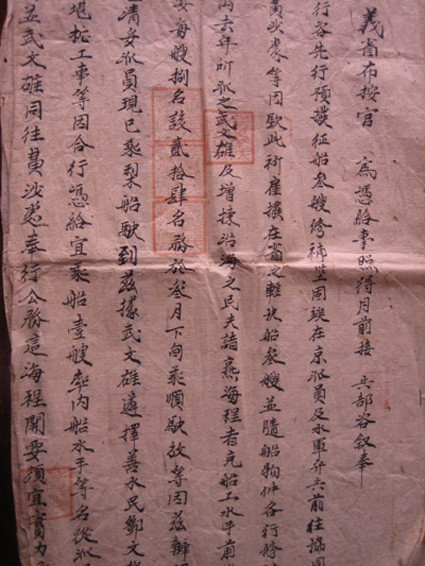 義省布按官 為憑給事照得月前接 兵部咨敘奉
行咨先行預撥征船叁艘修補堅固竢在京派員及水軍弁兵前往協同
黃沙處等因欽此所雇撥在省之輕快船叁艘並隨船物件各行修
去年所派之武文雄及增揀沿海之民夫諳熟海程者充船工水手前
妥每艘捌名該貳拾肆名務於叁月下旬乘順駛放等因茲辦
清妥派員現已乘梨船駛到茲據武文雄遴擇善水民鄧文
堪柁工事等因合行憑給宜乘船壹艘率内船水手等名從派
並武文雄同往黃沙處奉行公務這海程關要須宜實力